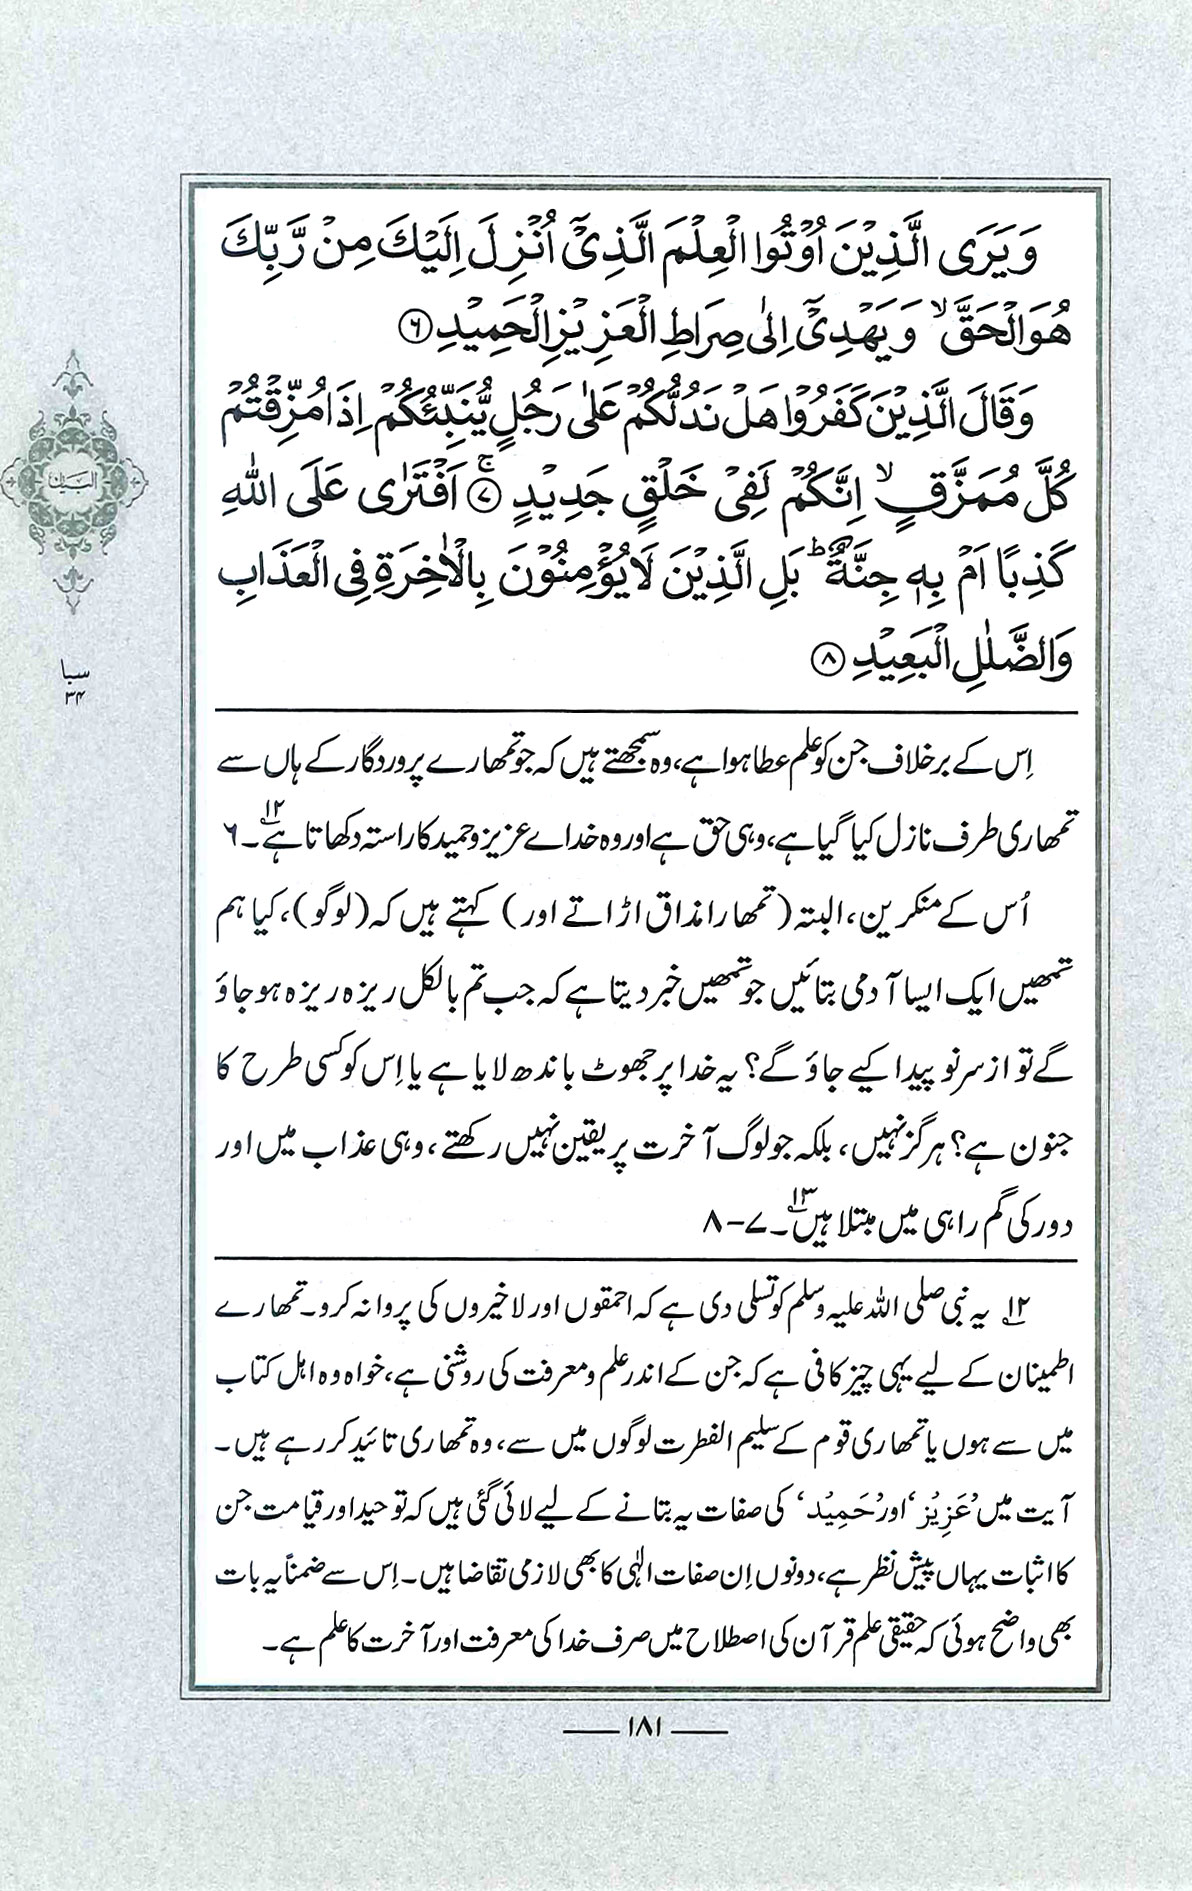 وَیَرَی الَّذِیْنَ اُوْتُوا الْعِلْمَ الَّذِیْٓ اُنْزِلَ اِلَیْكَ مِنْ رَّبِّكَ
هُوَالْحَقَّ ۙ وَیَهْدِیْٓ اِلٰی صِرَاطِ الْعَزِیْزِالْحَمِیْدِ ﴿۶﴾
وَقَالَ الَّذِیْنَ كَفَرُوْا هَلْ نَدُلُّكُمْ عَلٰی رَجُلٍ یُّنَبِّئُكُمْ اِذَا مُزِّقْتُمْ
كُلَّ مُمَزَّقٍ ۙ اِنَّكُمْ لَفِیْ خَلْقٍ جَدِیْدٍ ﴿۷﴾ ۚ اَفْتَرٰی عَلَی اللّٰهِ
كَذِبًا اَمْ بِهٖ جِنَّةٌ ؕ بَلِ الَّذِیْنَ لَایُؤْمِنُوْنَ بِالْاٰخِرَةِ فِی الْعَذَابِ
وَالضَّلٰلِ الْبَعِیْدِ ﴿۸﴾
البیان
سبا
۳۴
اِس کے برخلاف جن کو علم عطا ہوا ہے، وہ سمجھتے ہیں کہ جو تمھارے پروردگار کے ہاں سے
تمھاری طرف نازل کیا گیا ہے، وہی حق ہے اور وہ خداے عزیز و حمید کا راستہ دکھاتا ہے۱۲۔ ۶
اُس کے منکرین، البتہ (تمھارا مذاق اڑاتے اور) کہتے ہیں کہ (لوگو)، کیا ہم
تمھیں ایک ایسا آدمی بتائیں جو تمھیں خبر دیتا ہے کہ جب تم بالکل ریزہ ریزہ ہو جاؤ
گے تو از سر نو پیدا کیے جاؤ گے؟ یہ خدا پر جھوٹ باندھ لایا ہے یا اِس کو کسی طرح کا
جنون ہے؟ ہرگز نہیں، بلکہ جو لوگ آخرت پر یقین نہیں رکھتے، وہی عذاب میں اور
دور کی گم راہی میں مبتلا ہیں۱۳۔ ۷-۸
۱۲ یہ نبی صلی اللہ علیہ وسلم کو تسلی دی ہے کہ احمقوں اور لاخیروں کی پروا نہ کرو۔ تمھارے
اطمینان کے لیے یہی چیز کافی ہے کہ جن کے اندر علم و معرفت کی روشنی ہے، خواہ وہ اہل کتاب
میں سے ہوں یا تمھاری قوم کے سلیم الفطرت لوگوں میں سے، وہ تمھاری تائید کر رہے ہیں۔
آیت میں ’عَزِیْز‘ اور ’حَمِیْد‘ کی صفات یہ بتانے کے لیے لائی گئی ہیں کہ توحید اور قیامت جن
کا اثبات یہاں پیش نظر ہے، دونوں اِن صفات الٰہی کا بھی لازمی تقاضا ہیں۔ اِس سے ضمناً یہ بات
بھی واضح ہوئی کہ حقیقی علم قرآن کی اصطلاح میں صرف خدا کی معرفت اور آخرت کا علم ہے۔
۱۸۱